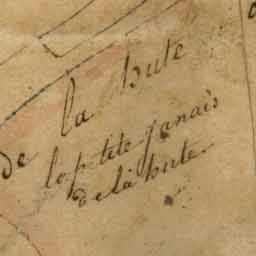 de la bute
la p tite janais
de la bute